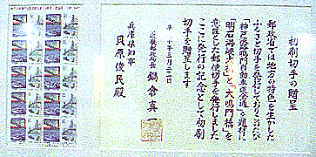 初刷切手の贈呈
郵政省では地方の特色を生かした
ふるさと切手を発行しておりこのたび
「神戸淡路鳴門自動車道全通」を題材に
「明石海峡大橋」と「大鳴門橋」を
意匠とした郵便切手を発行しました
ここに発行の記念として初刷
切手を贈呈します
平成十年三月二十日
郵政局長 鍋倉真一
兵庫県知事
貝原俊民殿